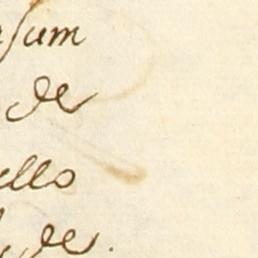 sum
de
ello
de.